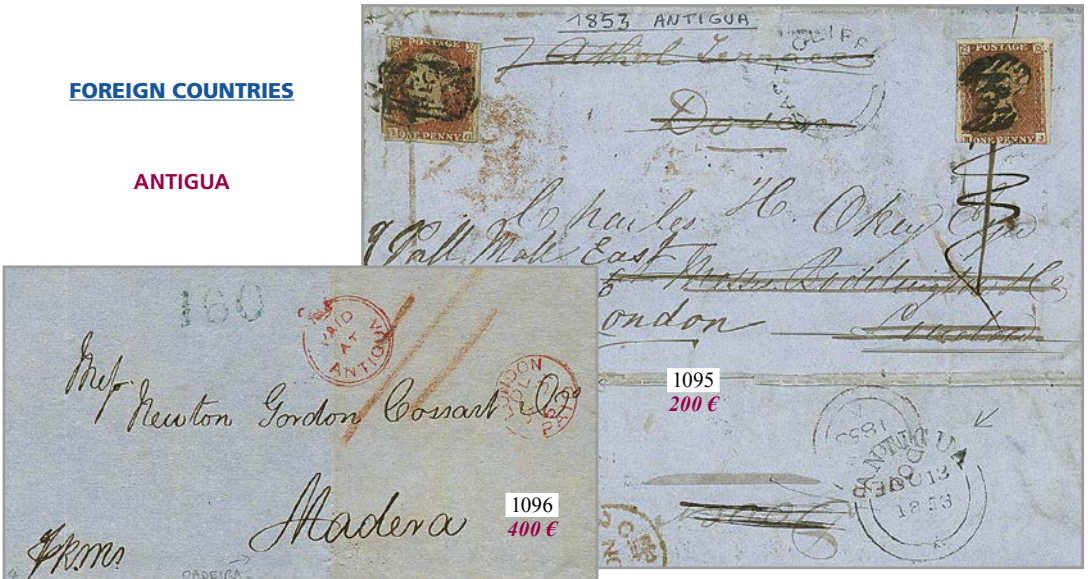 FOREIGN COUNTRIES
ANTIGUA
1853 ANTIGUA
POSTAGE
ONE PENNY
POSTAGE
ONE PENNY
7 Athol Terrace
CLIFF
Dover
Charles H. Okey Esqr
9 Pall Mall East
London
London
1095
200 €
1853
ANTIGUA
1853
160
PAID
AT
ANTIGUA
LONDON
PAID
Messrs
Newton Gordon Cossart & Co
Madera
1096
400 €
p R.M.S
MADEIRA